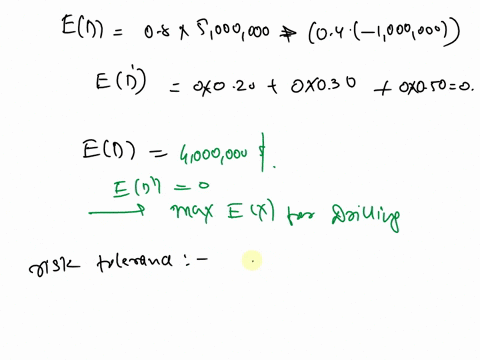 E(D) = 0.8 x 5,000,000 + (0.4.(-1,000,000))
E(D') = 0x0.20 + 0x0.30 + 0x0.50=0.
E(D) = 4,000,000 $.
E(D') = 0
→ max E(X) for Drilling
risk tolerana :-